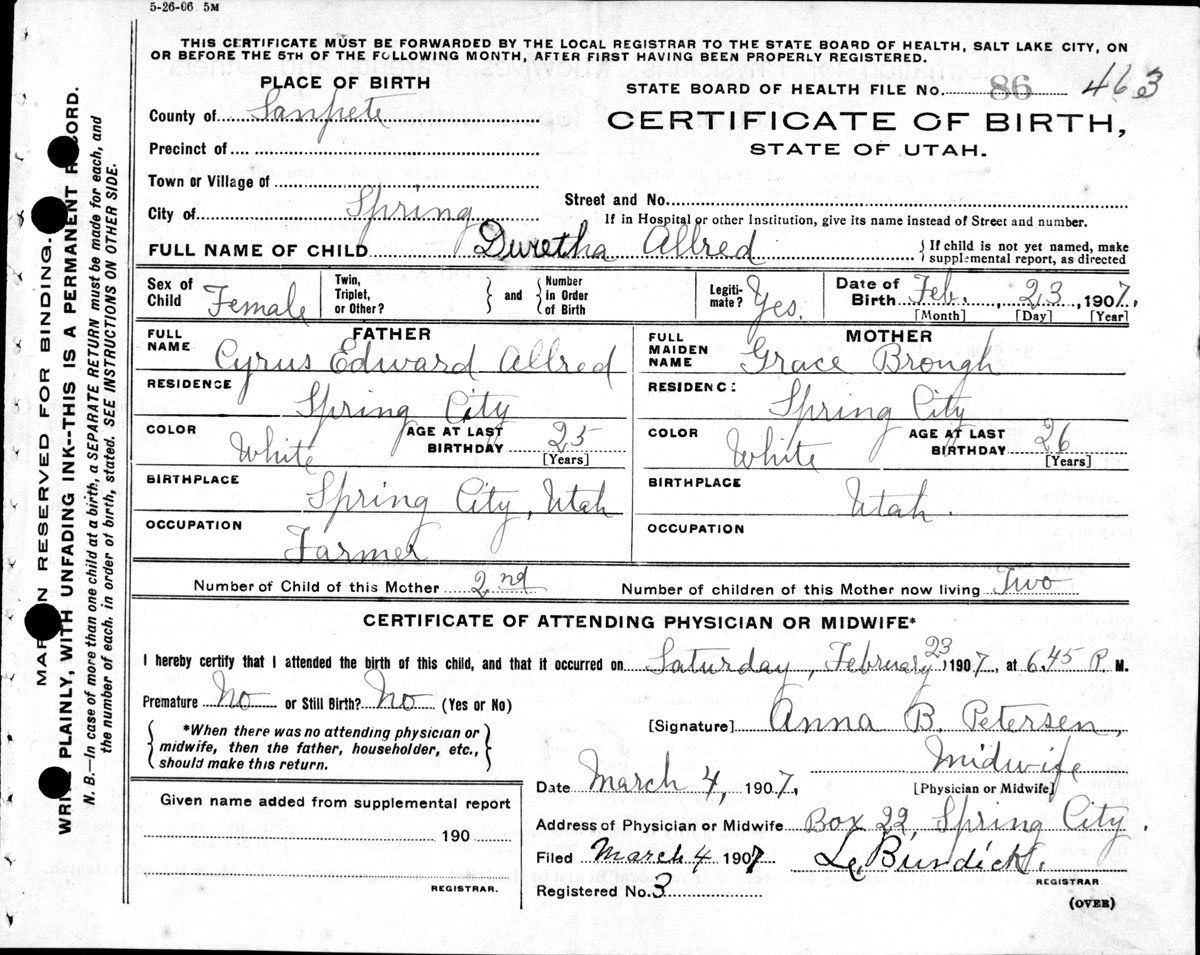 5-26-06 5M
THIS CERTIFICATE MUST BE FORWARDED BY THE LOCAL REGISTRAR TO THE STATE BOARD OF HEALTH, SALT LAKE CITY, ON
OR BEFORE THE 5TH OF THE FOLLOWING MONTH, AFTER FIRST HAVING BEEN PROPERLY REGISTERED.
PLACE OF BIRTH
STATE BOARD OF HEALTH FILE No. 86 463
County of Sanpete
CERTIFICATE OF BIRTH,
STATE OF UTAH.
Precinct of
Town or Village of
Street and No.
City of Spring
If in Hospital or other Institution, give its name instead of Street and number.
FULL NAME OF CHILD Duretha Allred
If child is not yet named, make
supplemental report, as directed
Sex of Child Female
Twin, Triplet, or Other?
and
Number in Order of Birth
Legitimate? Yes.
Date of Birth Feb. 23, 1907.
[Month] [Day] [Year]
FATHER
FULL NAME Cyrus Edward Allred
RESIDENCE Spring City
COLOR White
AGE AT LAST BIRTHDAY 25 [Years]
BIRTHPLACE Spring City, Utah
OCCUPATION Farmer
MOTHER
FULL MAIDEN NAME Grace Brough
RESIDENC: Spring City
COLOR White
AGE AT LAST BIRTHDAY 26 [Years]
BIRTHPLACE Utah.
OCCUPATION
Number of Child of this Mother 2nd
Number of children of this Mother now living Two
CERTIFICATE OF ATTENDING PHYSICIAN OR MIDWIFE*
I hereby certify that I attended the birth of this child, and that it occurred on Saturday, February 23, 1907, at 6.45 P. M.
Premature No or Still Birth? No (Yes or No)
[Signature] Anna B. Petersen,
*When there was no attending physician or
midwife, then the father, householder, etc.,
should make this return.
Midwife
Date March 4, 1907.
[Physician or Midwife]
Given name added from supplemental report
190
REGISTRAR.
Address of Physician or Midwife Box 22, Spring City.
Filed March 4 1907
REGISTRAR
Registered No. 3
(OVER)
MARGIN RESERVED FOR BINDING.
WRITE PLAINLY, WITH UNFADING INK--THIS IS A PERMANENT RECORD.
N. B.—In case of more than one child at a birth, a SEPARATE RETURN must be made for each, and
the number of each. in order of birth, stated. SEE INSTRUCTIONS ON OTHER SIDE.